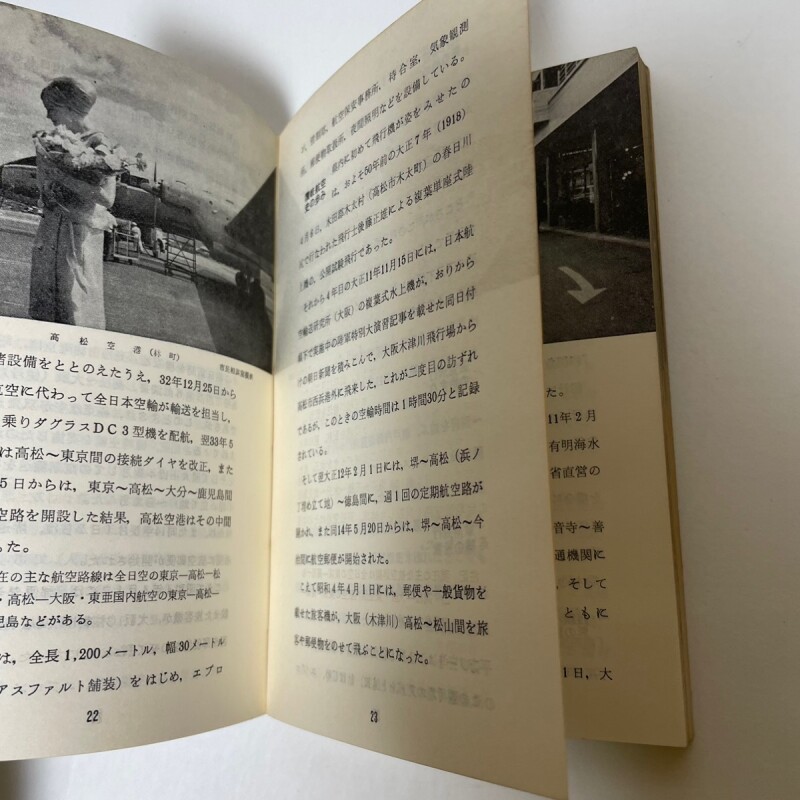 高松空港（林町）
諸設備をととのえたうえ，32年12月25日から
空に代わって全日本空輸が輸送を担当し，
乗りダグラスDC3型機を配航，翌33年5
は高松〜東京間の接続ダイヤを改正，また
5日からは，東京〜高松〜大分〜鹿児島間
空路を開設した結果，高松空港はその中間
った。
在の主な航空路線は全日空の東京—高松—松
・高松—大阪・東亜国内航空の東京—高松—
児島などがある。
は，全長1,200メートル，幅30メートル
アスファルト舗装）をはじめ，エプロ
22
管制塔，航空保安事務所，待合室，気象観測
郵便物取扱所，夜間照明などを設備している。
讃岐航空
史の歩み
県内に初めて飛行機が姿をみせたの
は，およそ50年前の大正7年（1918）
4月8日，木田郡木太村（高松市木太町）の春日川
尻で行なわれた飛行士後藤正雄による複葉単座式陸
上機の，公開試験飛行であった。
それから4年目の大正11年11月15日には，日本航
空輸送研究所（大阪）の複葉式水上機が，おりから
県下で実施中の陸軍特別大演習記事を載せた同日付
けの朝日新聞を積みこんで，大阪木津川飛行場から
高松市西浜港外に飛来した。これが二度目の訪ずれ
であるが，このときの空輸時間は1時間30分と記録
されている。
そして翌大正12年2月1日には，堺〜高松（浜ノ
丁埋め立て地）〜徳島間に，週1回の定期航空路が
開かれ，また同14年5月20日からは，堺〜高松〜今
治間に航空郵便が開始された。
こえて昭和4年4月1日には，郵便や一般貨物を
載せた旅客機が，大阪（木津川）高松〜松山間を旅
客や郵便物をのせて飛ぶことになった。
23
た。
11年2月
有明海水
省直営の
音寺〜善
通機関に
，そして
ともに
1日，大